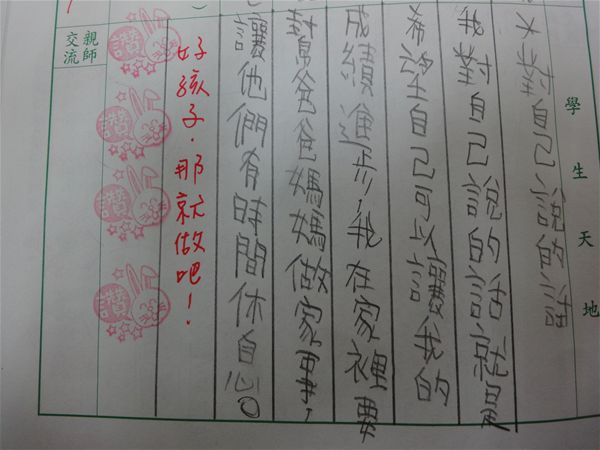 學生天地
大對自己說的話
我對自己說的話就是
希望自己可以讓我的
成績進步，我在家裡要
幫爸爸媽媽做家事，
讓他們有時間休息。
好孩子．那就做吧！
讚
讚
讚
讚
親師交流